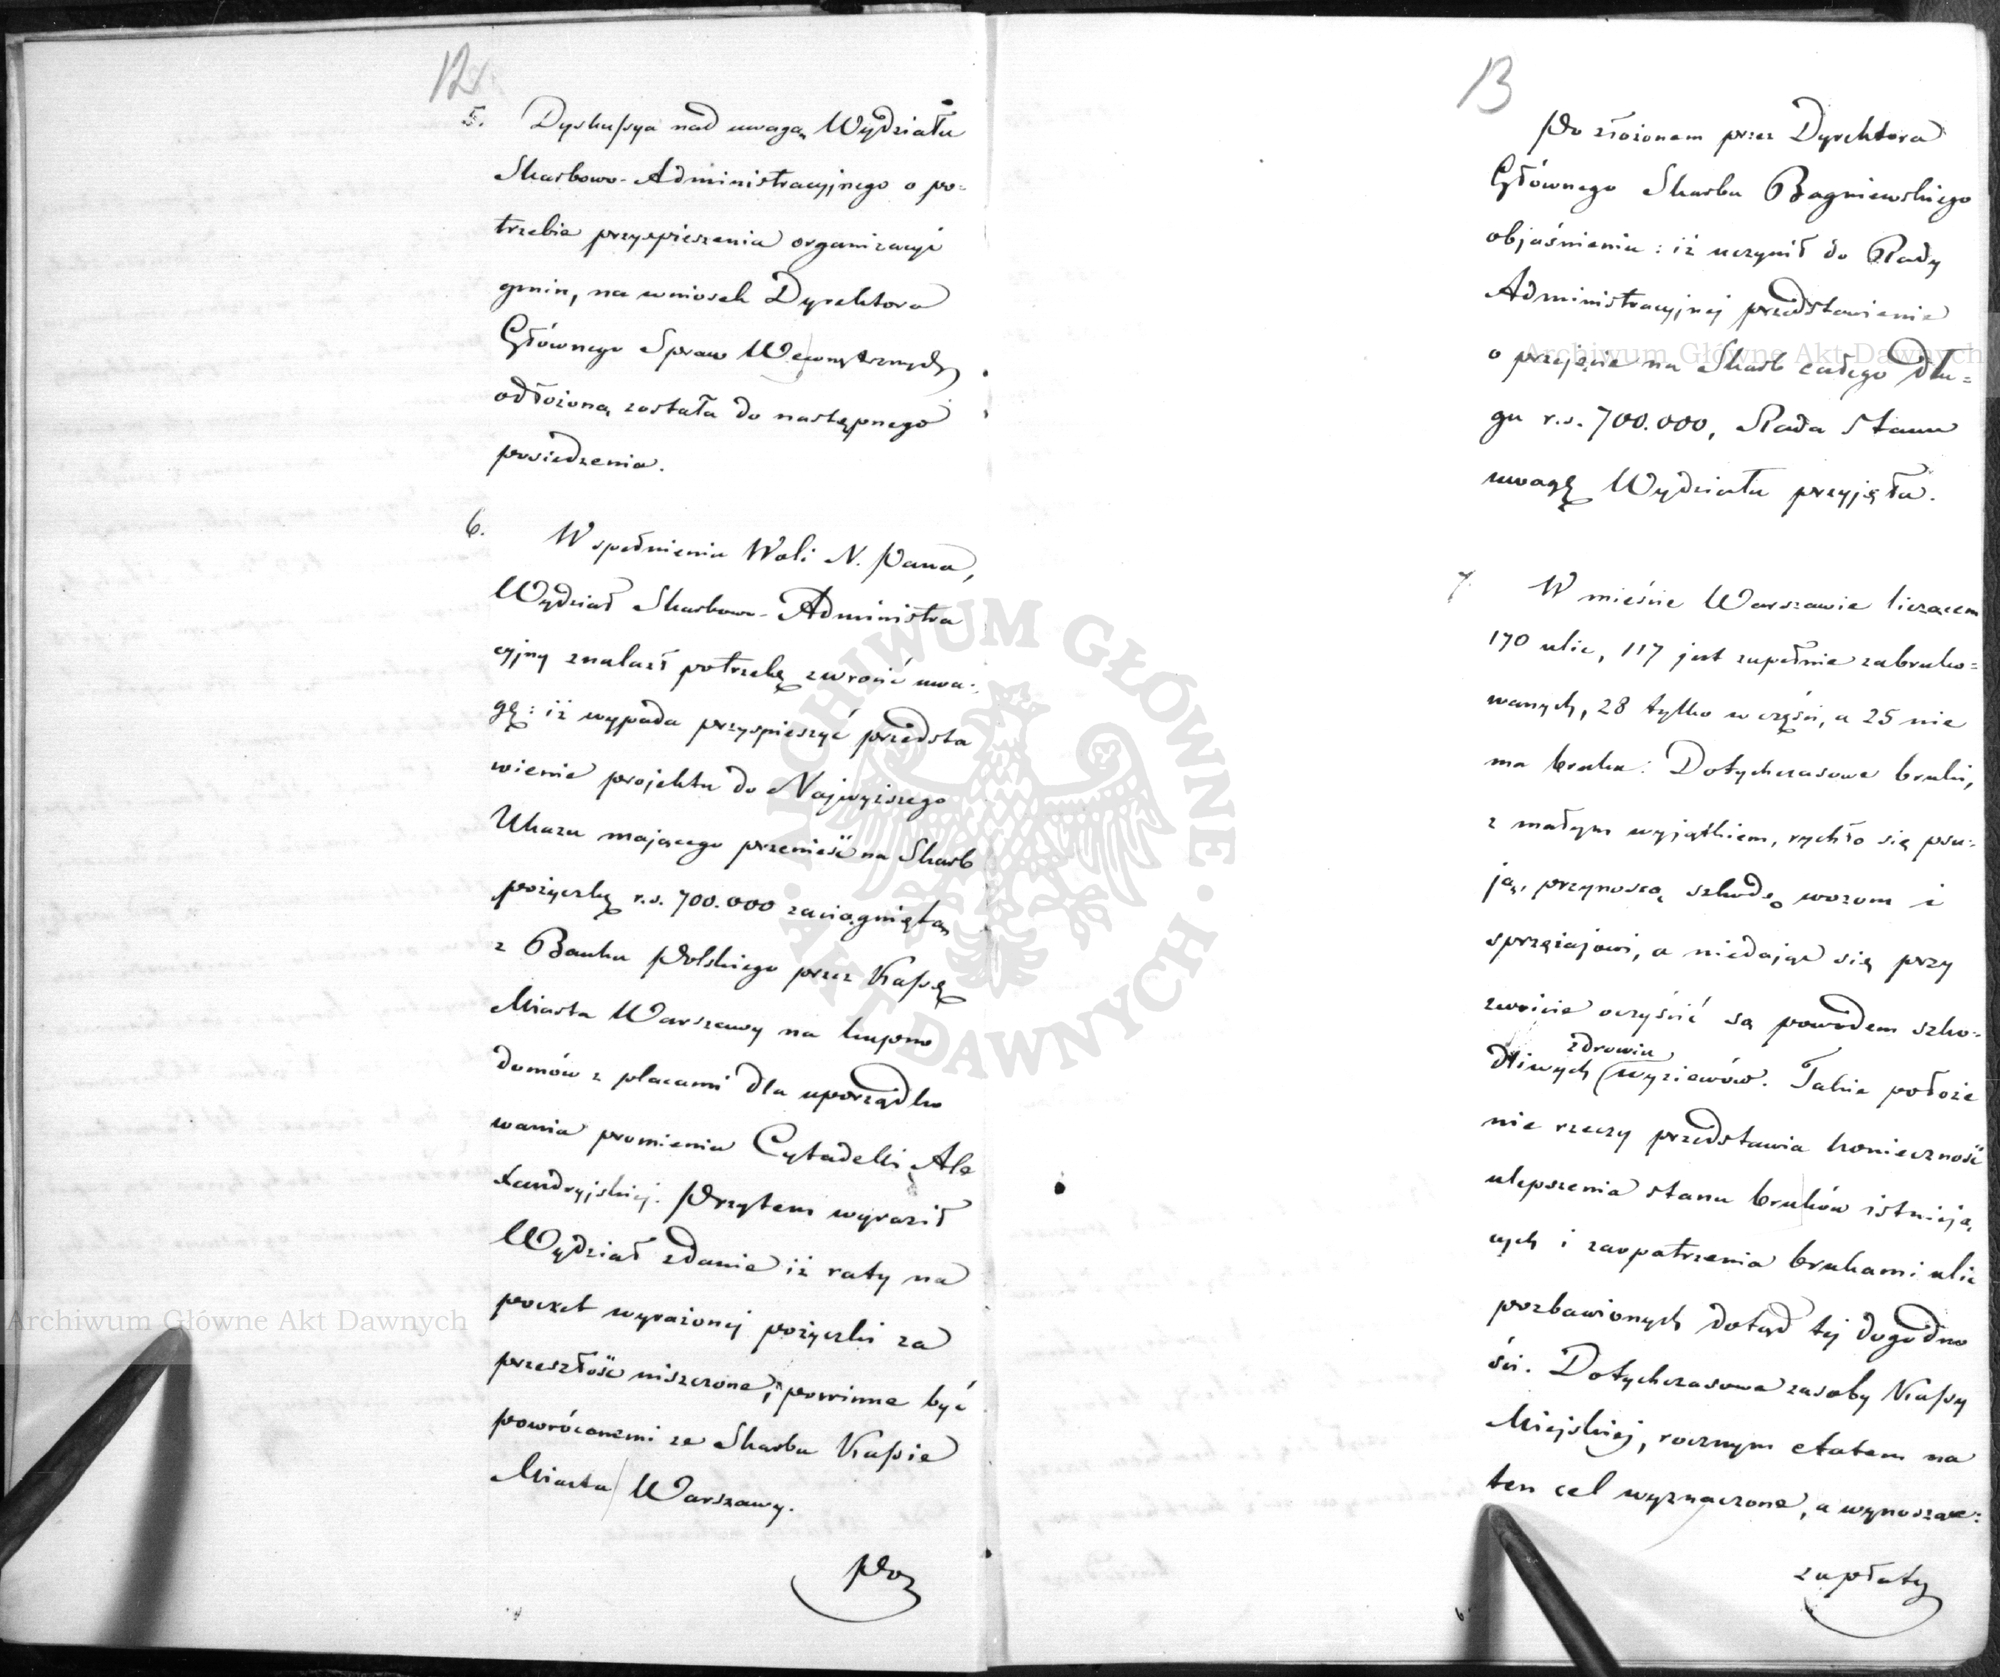 12
5. Dyskussya nad uwagą Wydziału
Skarbowo-Administracyjnego o po=
trzebie przyspieszenia organizacyi
gmin, na wniosek Dyrektora
Głównego Spraw Wewnętrznych
odłożoną została do następnego
posiedzenia.
6. W spełnieniu Woli N. Pana,
Wydział Skarbowo-Administra
cyjny znalazł potrzebę zwrócić uwa=
gę: iż wypada przyspieszyć przedsta
wienie projektu do Najwyższego
Ukazu mającego przenieść na Skarb
pożyczkę r.s. 700.000 zaciągniętą
z Banku Polskiego przez Kassę
Miasta Warszawy na kupno
domów z placami dla uporządko
wania promienia Cytadelli Ale
xandryjskiej. Przytem wyraził
Wydział zdanie iż raty na
poczet wyrażonej pożyczki za
przeszłość niszczone, powinne być
powróconemi ze Skarbu Kassie
Miasta Warszawy.
Po
13
Po złożonem przez Dyrektora
Głównego Skarbu Bagniewskiego
objaśnieniu: iż uczynił do Rady
Administracyjnej przedstawienie
o przejęcie na Skarb całego dłu=
gu r.s. 700.000, Rada Stanu
uwagę Wydziału przyjęła.
7. W mieście Warszawie liczącem
170 ulic, 117 jest zupełnie zabruko=
wanych, 28 tylko w części, a 25 nie
ma bruku. Dotychczasowe bruki,
z małym wyjątkiem, rychło się psu=
ją, przynoszą szkodę wozom i
sprzężajowi, a niedając się przy
zwoicie oczyścić są powodem szko=
zdrowiu
dliwych wyziewów. Takie położe
nie rzeczy przedstawia konieczność
ulepszenia stanu bruków istnieją
cych i zaopatrzenia brukami ulic
pozbawionych dotąd tej dogodno
ści. Dotychczasowe zasoby Kassy
Miejskiej, rocznym etatem na
ten cel wyznaczone, a wynoszące:
zapłaty
Archiwum Główne Akt Dawnych
Archiwum Główne Akt Dawnych
ARCHIWUM GŁÓWNE
AKT DAWNYCH